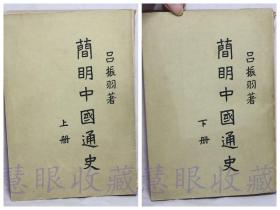 吕振羽著
簡明中國通史
上册
吕振羽著
簡明中國通史
下册
慧眼收藏
慧眼收藏